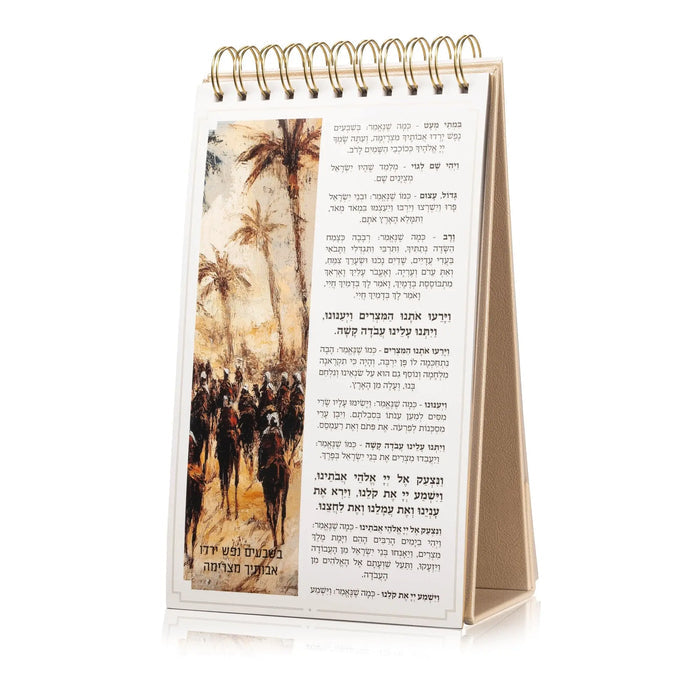 במתי מעט - כְּמָה שֶׁנֶּאֱמַר: בְּשִׁבְעִים
נֶפֶשׁ יָרְדוּ אֲבוֹתֶיךָ מִצְרָיְמָה, וְעַתָּה שָׂמְךָ
יְיָ אֱלֹהֶיךָ כְּכוֹכְבֵי הַשָּׁמַיִם לָרֹב.
וַיְהִי שָׁם לְגוֹי - מְלַמֵּד שֶׁהָיוּ יִשְׂרָאֵל
מְצֻיָּנִים שָׁם.
גָּדוֹל, עָצוּם - כְּמוֹ שֶׁנֶּאֱמַר: וּבְנֵי יִשְׂרָאֵל
פָּרוּ וַיִּשְׁרְצוּ וַיִּרְבּוּ וַיַּעַצְמוּ בִּמְאֹד מְאֹד,
וַתִּמָּלֵא הָאָרֶץ אֹתָם.
וָרָב - כְּמָה שֶׁנֶּאֱמַר: רְבָבָה כְּצֶמַח
הַשָּׂדֶה נְתַתִּיךְ, וַתִּרְבִּי וַתִּגְדְּלִי וַתָּבֹאִי
בַּעֲדִי עֲדָיִים, שָׁדַיִם נָכֹנוּ וּשְׂעָרֵךְ צִמֵּחַ,
וְאַתְּ עֵרֹם וְעֶרְיָה. וָאֶעֱבֹר עָלַיִךְ וָאֶרְאֵךְ
מִתְבּוֹסֶסֶת בְּדָמָיִךְ, וָאֹמַר לָךְ בְּדָמַיִךְ חֲיִי,
וָאֹמַר לָךְ בְּדָמַיִךְ חֲיִי.
וַיָּרֵעוּ אֹתָנוּ הַמִּצְרִים וַיְעַנּוּנוּ,
וַיִּתְּנוּ עָלֵינוּ עֲבֹדָה קָשָׁה.
וַיָּרֵעוּ אֹתָנוּ הַמִּצְרִים - כְּמוֹ שֶׁנֶּאֱמַר: הָבָה
נִתְחַכְּמָה לוֹ פֶּן יִרְבֶּה, וְהָיָה כִּי תִקְרֶאנָה
מִלְחָמָה וְנוֹסַף גַּם הוּא עַל שֹׂנְאֵינוּ וְנִלְחַם
בָּנוּ, וְעָלָה מִן הָאָרֶץ.
וַיְעַנּוּנוּ - כְּמָה שֶׁנֶּאֱמַר: וַיָּשִׂימוּ עָלָיו שָׂרֵי
מִסִּים לְמַעַן עַנֹּתוֹ בְּסִבְלֹתָם. וַיִּבֶן עָרֵי
מִסְכְּנוֹת לְפַרְעֹה. אֶת פִּתֹם וְאֶת רַעַמְסֵס.
וַיִּתְּנוּ עָלֵינוּ עֲבֹדָה קָשָׁה - כְּמוֹ שֶׁנֶּאֱמַר:
וַיַּעֲבִדוּ מִצְרַיִם אֶת בְּנֵי יִשְׂרָאֵל בְּפָרֶךְ.
וַנִּצְעַק אֶל יְיָ אֱלֹהֵי אֲבֹתֵינוּ,
וַיִּשְׁמַע יְיָ אֶת קֹלֵנוּ, וַיַּרְא אֶת
עָנְיֵנוּ וְאֶת עֲמָלֵנוּ וְאֶת לַחֲצֵנוּ.
וַנִּצְעַק אֶל יְיָ אֱלֹהֵי אֲבֹתֵינוּ - כְּמָה שֶׁנֶּאֱמַר:
וַיְהִי בַיָּמִים הָרַבִּים הָהֵם וַיָּמָת מֶלֶךְ
מִצְרַיִם, וַיֵּאָנְחוּ בְנֵי יִשְׂרָאֵל מִן הָעֲבוֹדָה
וַיִּזְעָקוּ, וַתַּעַל שַׁוְעָתָם אֶל הָאֱלֹהִים מִן
הָעֲבֹדָה.
וַיִּשְׁמַע יְיָ אֶת קֹלֵנוּ - כְּמָה שֶׁנֶּאֱמַר: וַיִּשְׁמַע
בשבעים נפש ירדו
אבותיך מצרימה